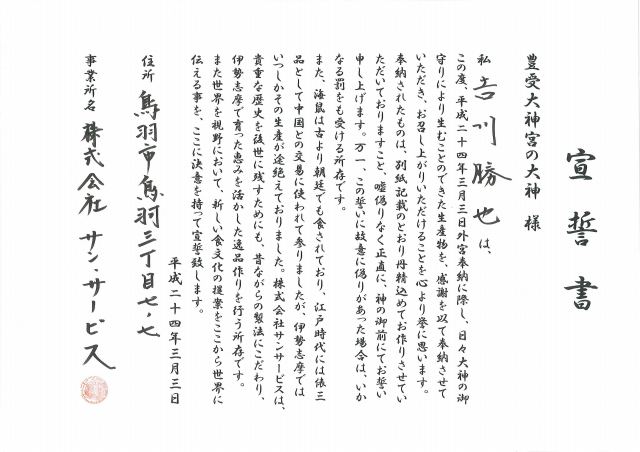 宣誓書
豊受大神宮の大神 様
私 吉川勝也 は、
この度、平成二十四年三月三日外宮奉納に際し、日々大神の御
守りにより生むことのできた生産物を、感謝を以て奉納させて
いただき、お召し上がりいただけることを心より誉に思います。
奉納されたものは、別紙記載のとおり丹精込めてお作りさせてい
ただいておりますこと、嘘偽りなく正直に、神の御前にてお誓い
申し上げます。万一、この誓いに故意に偽りがあった場合は、いか
なる罰をも受ける所存です。
また、海鼠は古より朝廷でも食されており、江戸時代には俵三
品として中国との交易に使われて参りましたが、伊勢志摩では
いつしかその生産が途絶えておりました。株式会社サンサービスは、
貴重な歴史を後世に残すためにも、昔ながらの製法にこだわり、
伊勢志摩で育った恵みを活かした逸品作りを行う所存です。
また世界を視野において、新しい食文化の提案をここから世界に
伝える事を、ここに決意を持って宣誓致します。
平成二十四年三月三日
住所 鳥羽市鳥羽三丁目七ノ七
事業所名 株式会社サン・サービス